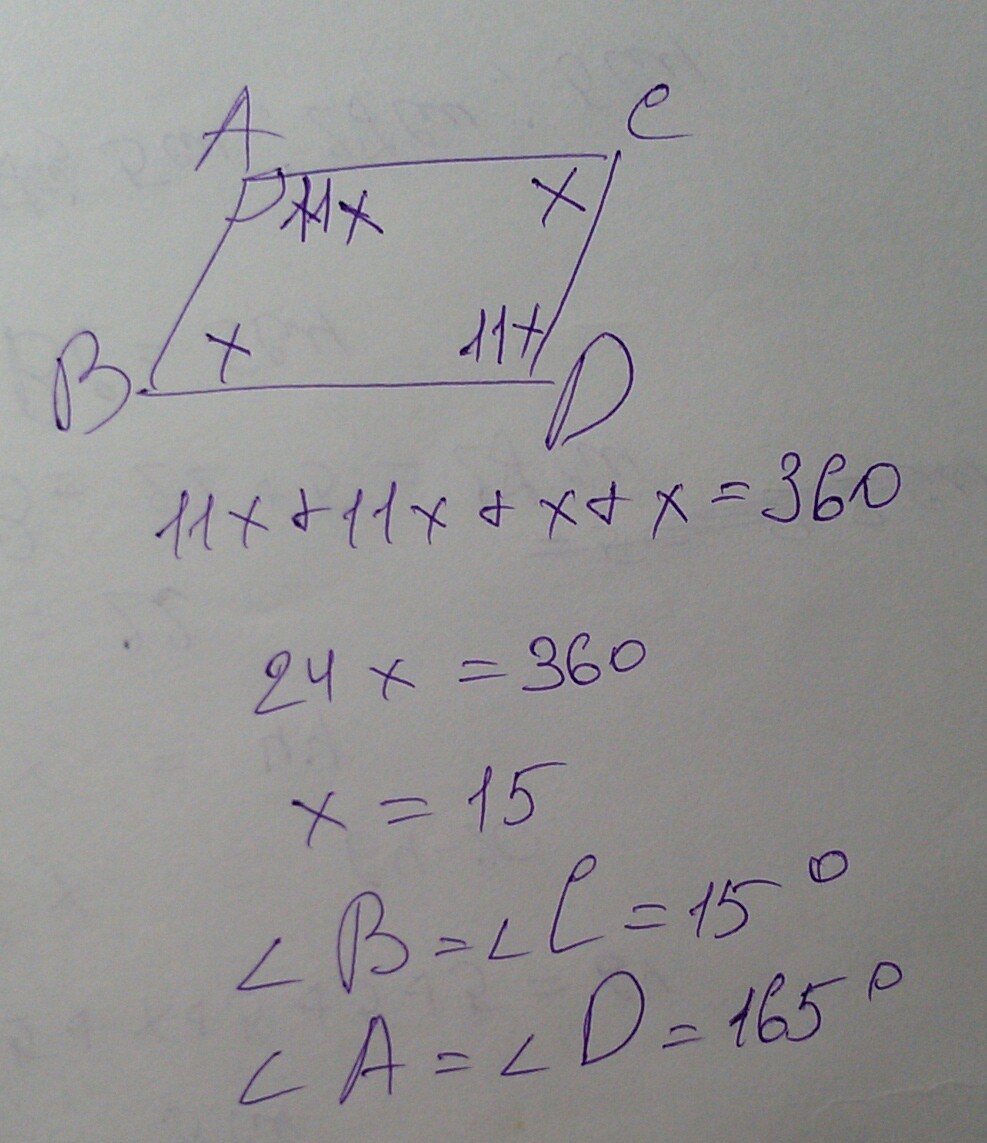 A C
11x x
x 11x
B D
11x+11x+x+x=360
24x=360
x=15
∠B=∠C=15°
∠A=∠D=165°